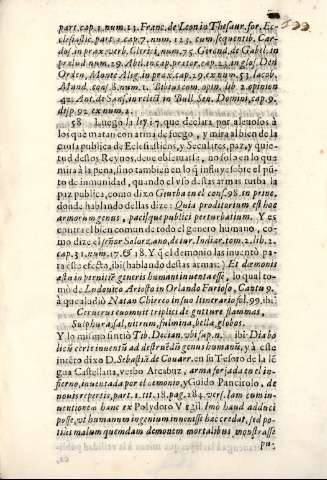 part. cap. 1. num. 13. Franc. de Leon in Thesaur. for. Ec-
clesiastic. part. 1. cap. 7. num. 123. cum sequentib. Car-
dos in prax. verb. Clerici, num. 75. Girond. de Gabel. in
prælud num. 29. Abb. in cap. prater, cap. 23. in glos. Den
Orden, Monte Aleg. in prax. cap. 29. ex num. 53. Iacob.
Mand. cons. 8. num. 1. Bibius com. opin. lib. 2. opinion
42. Ant. de Sans. in relect. in Bull. Cen. Domini, cap. 9.
disp. 92. ex num. 1.
58 Luego la ley, que declara por alevosos à
los que matan con arma de fuego, y mira al bien de la
causa publica de Eclesiasticos, y Seculares, paz, y quie-
tud destos Reynos, deve observarse, no solo en lo que
mira à la pena, sino tambien en lo q̃ influye sobre el pũ-
to de inmunidad, quando el vso destas armas turba la
paz publica, como dixo Giurba en el cons. 98. in princ.
donde hablando dellas dize: Quia proditorium est hoc
armorum genus, pacisque publici perturbativum. Y es
contra el bien comun de todo el genero humano, co-
mo dize el señor Solorzano, de iur. Indiar. tom. 2. lib. 2.
cap. 31. num. 17. & 18. Y q̃ el demonio las inventò pa-
ra este efecto, ibi (hablando destas armas:) Et dæmonis
astu in perniciem generis humani inventa esse, lo qual to-
mò de Ludovico Ariosto in Orlando Furioso, Cantu 9.
à que aludiò Natan Chitreo in suo Itinerario fol. 99. ibi:
Cerverus evomuit triplici de gutture flammas,
Sulphura sal, nitrum, fulmina, bella, globos.
Y lo mismo sintiò Tib. Decian. vbi sup. n. ibi: Diabo
licũ certè inventũ ad destruēdũ genus humanũ, y à este
intēto dixo D. Sebastiã de Covarr. en su Tesoro de la lē
gua Castellana, verbo Arcabuz, arma forjada en el in-
fierno, inventada por el demonio, y Guido Pancirolo, de
novis repertis, part. 1. tit. 18. pag. 284. vers. Iam cum in-
ventionem hanc ex Polydoro Vergil. Imo haud adduci
posse, vt humanum ingenium invenisse hac credat, sed po-
tius malum quendam dæmonem mortalibus monstrasse